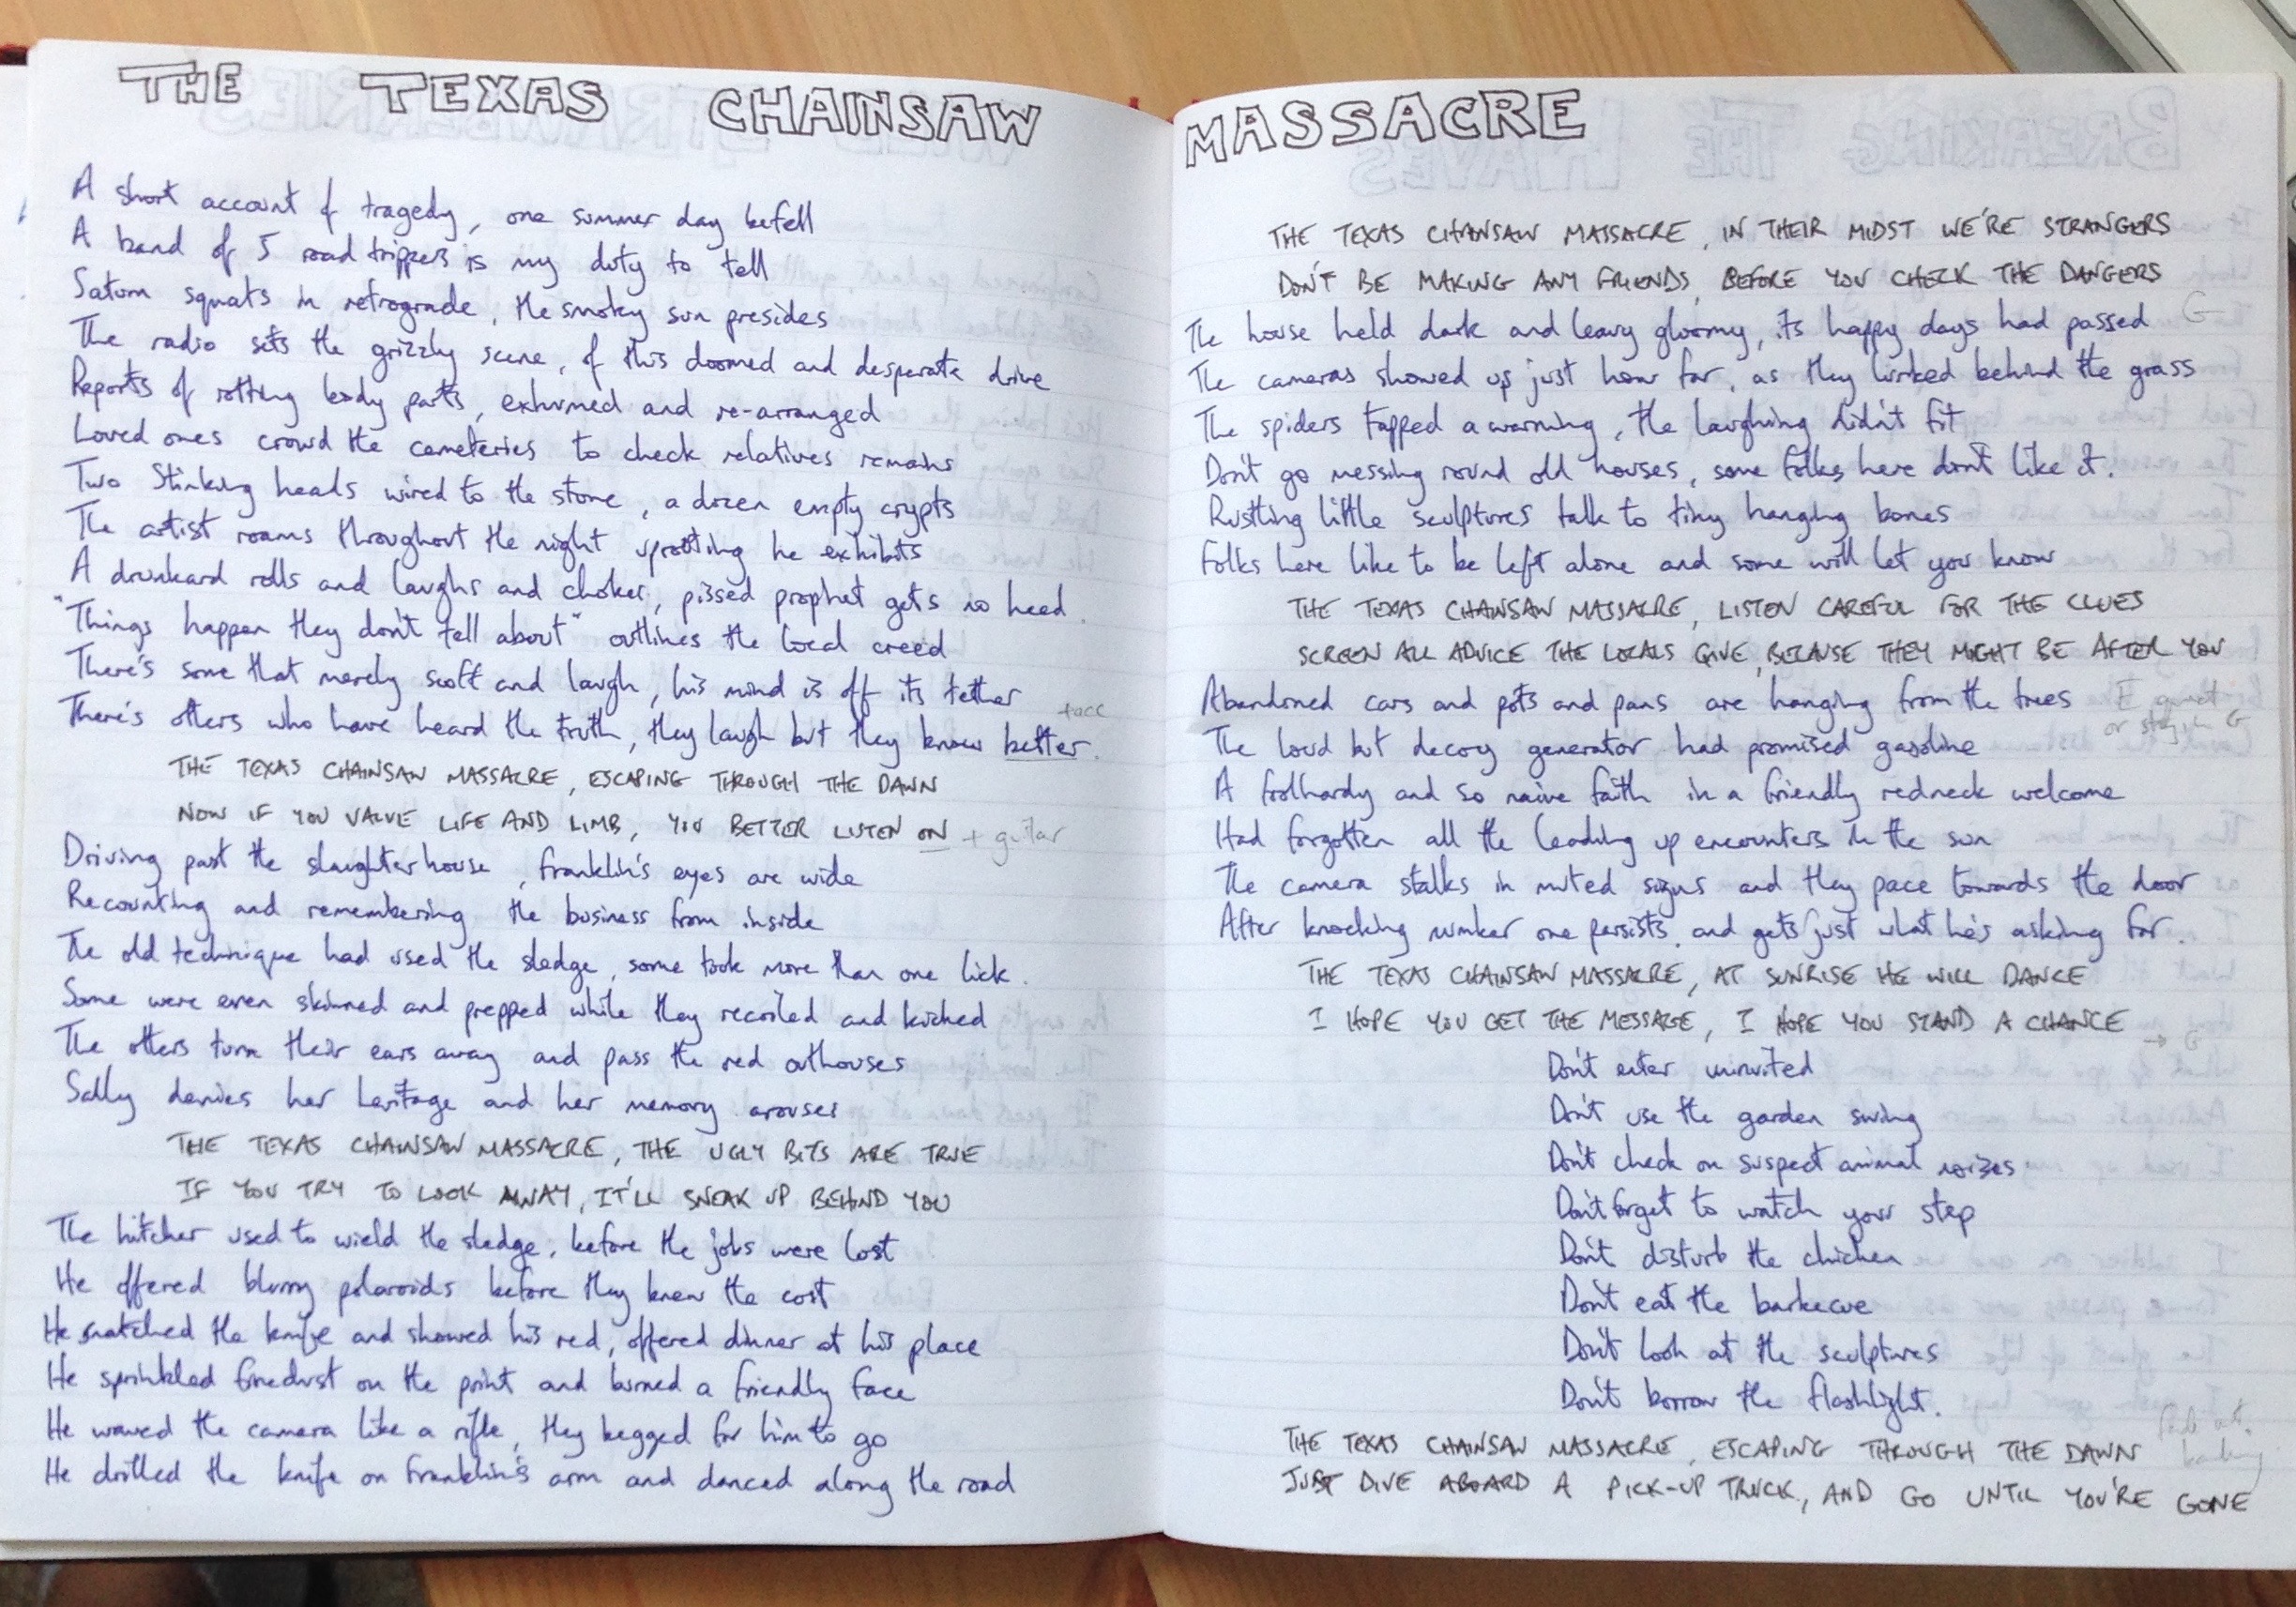 THE TEXAS CHAINSAW MASSACRE
A short account of tragedy, one summer day befell
A band of 5 road trippers is my duty to tell
Saturn squats in retrograde, the smoky sun presides
The radio sets the grizzly scene, of this doomed and desperate drive
Reports of rotting body parts, exhumed and re-arranged
Loved ones crowd the cemeteries to check relatives remains
Two Stinking heads wired to the stone, a dozen empty crypts
The artist roams throughout the night uprooting he exhibits
A drunkard rolls and laughs and chokes, pissed prophet gets no heed.
"Things happen they don't tell about" outlines the local creed
There's some that merely scoff and laugh, his mind is off its tether
There's others who have heard the truth, they laugh but they know better. +acc
THE TEXAS CHAINSAW MASSACRE, ESCAPING THROUGH THE DAWN
NOW IF YOU VALUE LIFE AND LIMB, YOU BETTER LISTEN ON + guitar
Driving past the slaughterhouse, Franklin's eyes are wide
Recounting and remembering the business from inside
The old technique had used the sledge, some took more than one lick.
Some were even skinned and prepped while they recoiled and kicked
The others turn their ears away and pass the red outhouses
Sally denies her heritage and her memory arouses
THE TEXAS CHAINSAW MASSACRE, THE UGLY BITS ARE TRUE
IF YOU TRY TO LOOK AWAY, IT'LL SNEAK UP BEHIND YOU
The hitcher used to wield the sledge, before the jobs were lost
He offered blurry polaroids before they knew the cost
He snatched the knife and showed his red, offered dinner at his place
He sprinkled firedust on the print and burned a friendly face
He waved the camera like a rifle, they begged for him to go
He drilled the knife on Franklin's arm and danced along the road
THE TEXAS CHANSAW MASSACRE, IN THEIR MIDST WE'RE STRANGERS
DON'T BE MAKING ANY FRIENDS, BEFORE YOU CHECK THE DANGERS
The house held dark and leavy gloomy, its happy days had passed G
The cameras showed us just how far, as they lurked behind the grass
The spiders tapped a warning, the laughing didn't fit
Don't go messing round old houses, some folks here don't like it.
Rustling little sculptures talk to tiny hanging bones
Folks here like to be left alone and some will let you know
THE TEXAS CHAINSAW MASSACRE, LISTEN CAREFUL FOR THE CLUES
SCREEN ALL ADVICE THE LOCALS GIVE, BECAUSE THEY MIGHT BE AFTER YOU
Abandoned cars and pots and pans are hanging from the trees E quiet
or stay in G
The loud but decoy generator had promised gasoline
A foolhardy and so naive faith in a friendly redneck welcome
Had forgotten all the leading up encounters in the sun
The camera stalks in muted signs and they pace towards the door
After knocking number one persists, and gets just what he's asking for.
THE TEXAS CHAINSAW MASSACRE, AT SUNRISE HE WILL DANCE
I HOPE YOU GET THE MESSAGE, I HOPE YOU STAND A CHANCE
→ G
Don't enter uninvited
Don't use the garden swing
Don't check on suspect animal noises
Don't forget to watch your step
Don't disturb the chicken
Don't eat the barbecue
Don't look at the sculptures
Don't borrow the flashlight.
THE TEXAS CHAINSAW MASSACRE, ESCAPING THROUGH THE DAWN
JUST DIVE ABOARD A PICK-UP TRUCK, AND GO UNTIL YOU'RE GONE